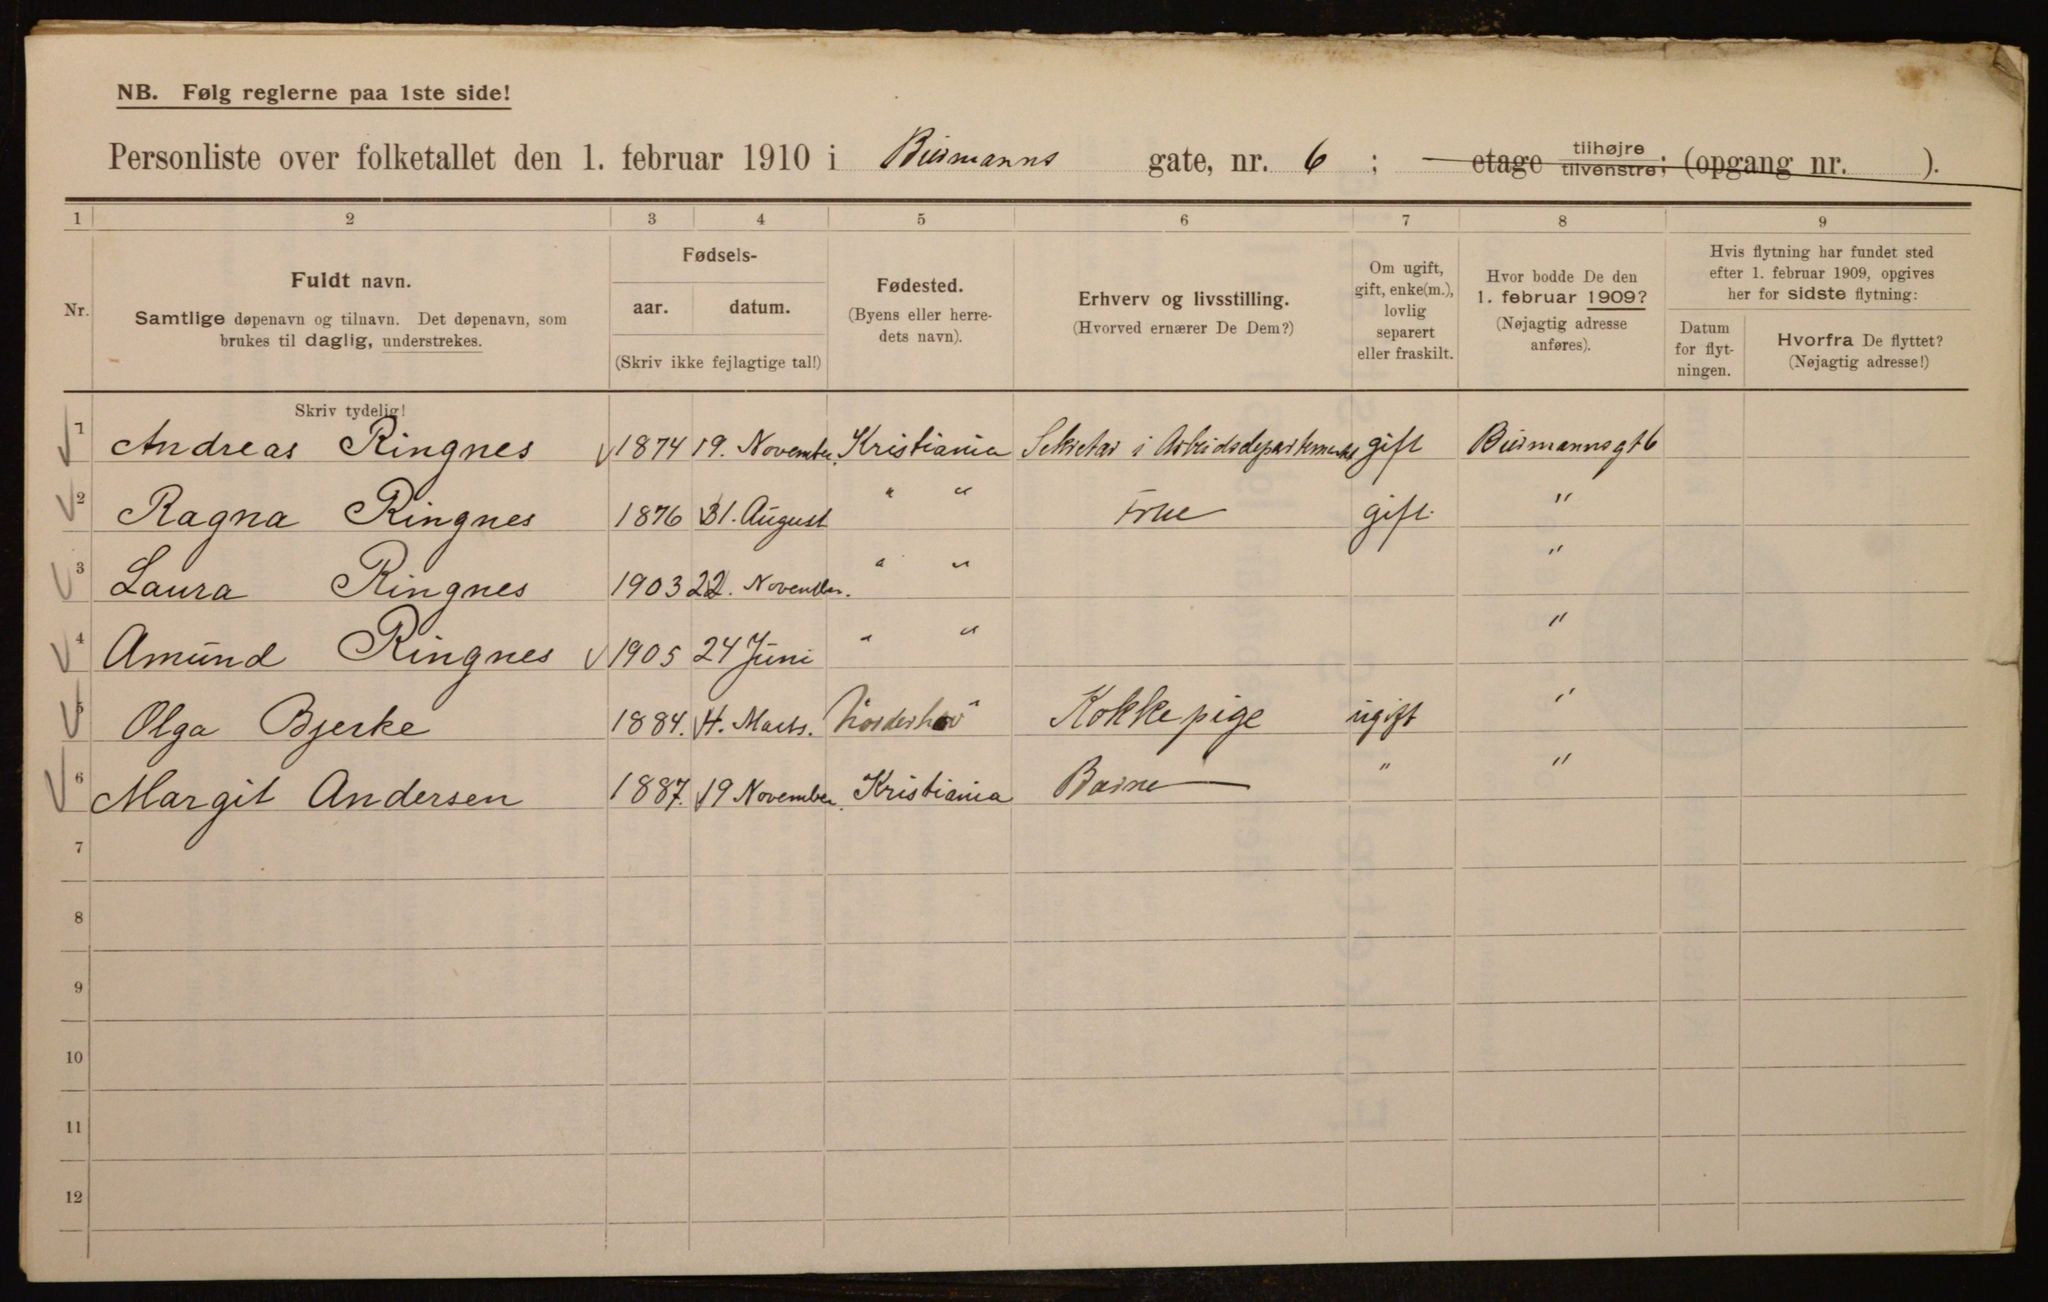 NB. Følg reglerne paa 1ste side!
Personliste over folketallet den 1. februar 1910 i Biermanns gate, nr. 6 ; etage tilhøjre tilvenstre; (opgang nr. ).
1 2 3 4 5 6 7 8 9
Nr.
Fuldt navn.
Samtlige døpenavn og tilnavn. Det døpenavn, som
brukes til daglig, understrekes.
Fødsels-
aar. datum.
(Skriv ikke fejlagtige tal!)
Fødested.
(Byens eller herre-
dets navn).
Erhverv og livsstilling.
(Hvorved ernærer De Dem?)
Om ugift,
gift, enke(m.),
lovlig
separert
eller fraskilt.
Hvor bodde De den
1. februar 1909?
(Nøjagtig adresse
anføres).
Hvis flytning har fundet sted
efter 1. februar 1909, opgives
her for sidste flytning:
Datum
for flyt-
ningen.
Hvorfra De flyttet?
(Nøjagtig adresse!)
Skriv tydelig!
1 Andreas Ringnes 1874 19. November. Kristiania Sekretær i Arbeidsdepartementet gift Biermannsgt 6
2 Ragna Ringnes 1876 31. August " " Frue gift. "
3 Laura Ringnes 1903 22. November. " " "
4 Amund Ringnes 1905 24 Juni " " "
5 Olga Bjerke 1884. 4. Marts. Norderhov Kokkepige ugift "
6 Margit Andersen 1887. 19 November. Kristiania Barne — " "
7
8
9
10
11
12